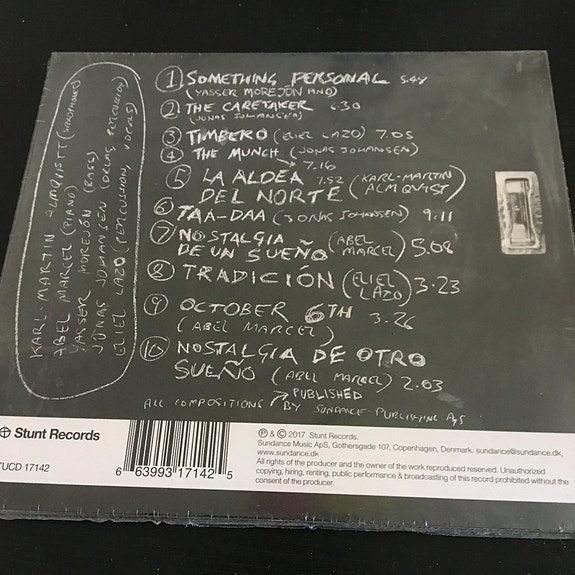 ① SOMETHING PERSONAL 5.48
(YASSER MOREJÓN PINO)
② THE CARETAKER 6.30
(JONAS JOHANSEN)
③ TIMBERO (ELIEL LAZO) 7.05
④ THE MUNCH (JONAS JOHANSEN)
→ 7.16
⑤ LA ALDEA 7.52 (KARL-MARTIN
DEL NORTE ALMQVIST)
⑥ TAA-DAA (JONAS JOHANSEN) 9.11
⑦ NOSTALGIA (ABEL
DE UN SUEÑO MARCEL) 5.08
⑧ TRADICIÓN (ELIEL
LAZO) 3.23
⑨ OCTOBER 6TH 3.26
(ABEL MARCEL)
⑩ NOSTALGIA DE OTRO
SUEÑO (ABEL MARCEL) 2.03
ALL COMPOSITIONS → PUBLISHED
BY SUNDANCE PUBLISHING A/S
KARL-MARTIN ALMQVIST (SAXOPHONES)
ABEL MARCEL (PIANO)
YASSER MOREJÓN (BASS)
JONAS JOHANSEN (DRUMS, PERCUSSION)
ELIEL LAZO (PERCUSSION, VOCALS)
Stunt Records
TUCD 17142
6 63993 17142 5
℗ & © 2017 Stunt Records.
Sundance Music ApS, Gothersgade 107, Copenhagen, Denmark. sundance@sundance.dk,
www.sundance.dk
All rights of the producer and the owner of the work reproduced reserved. Unauthorized
copying, hiring, renting, public performance & broadcasting of this record prohibited without the
consent of the producer.